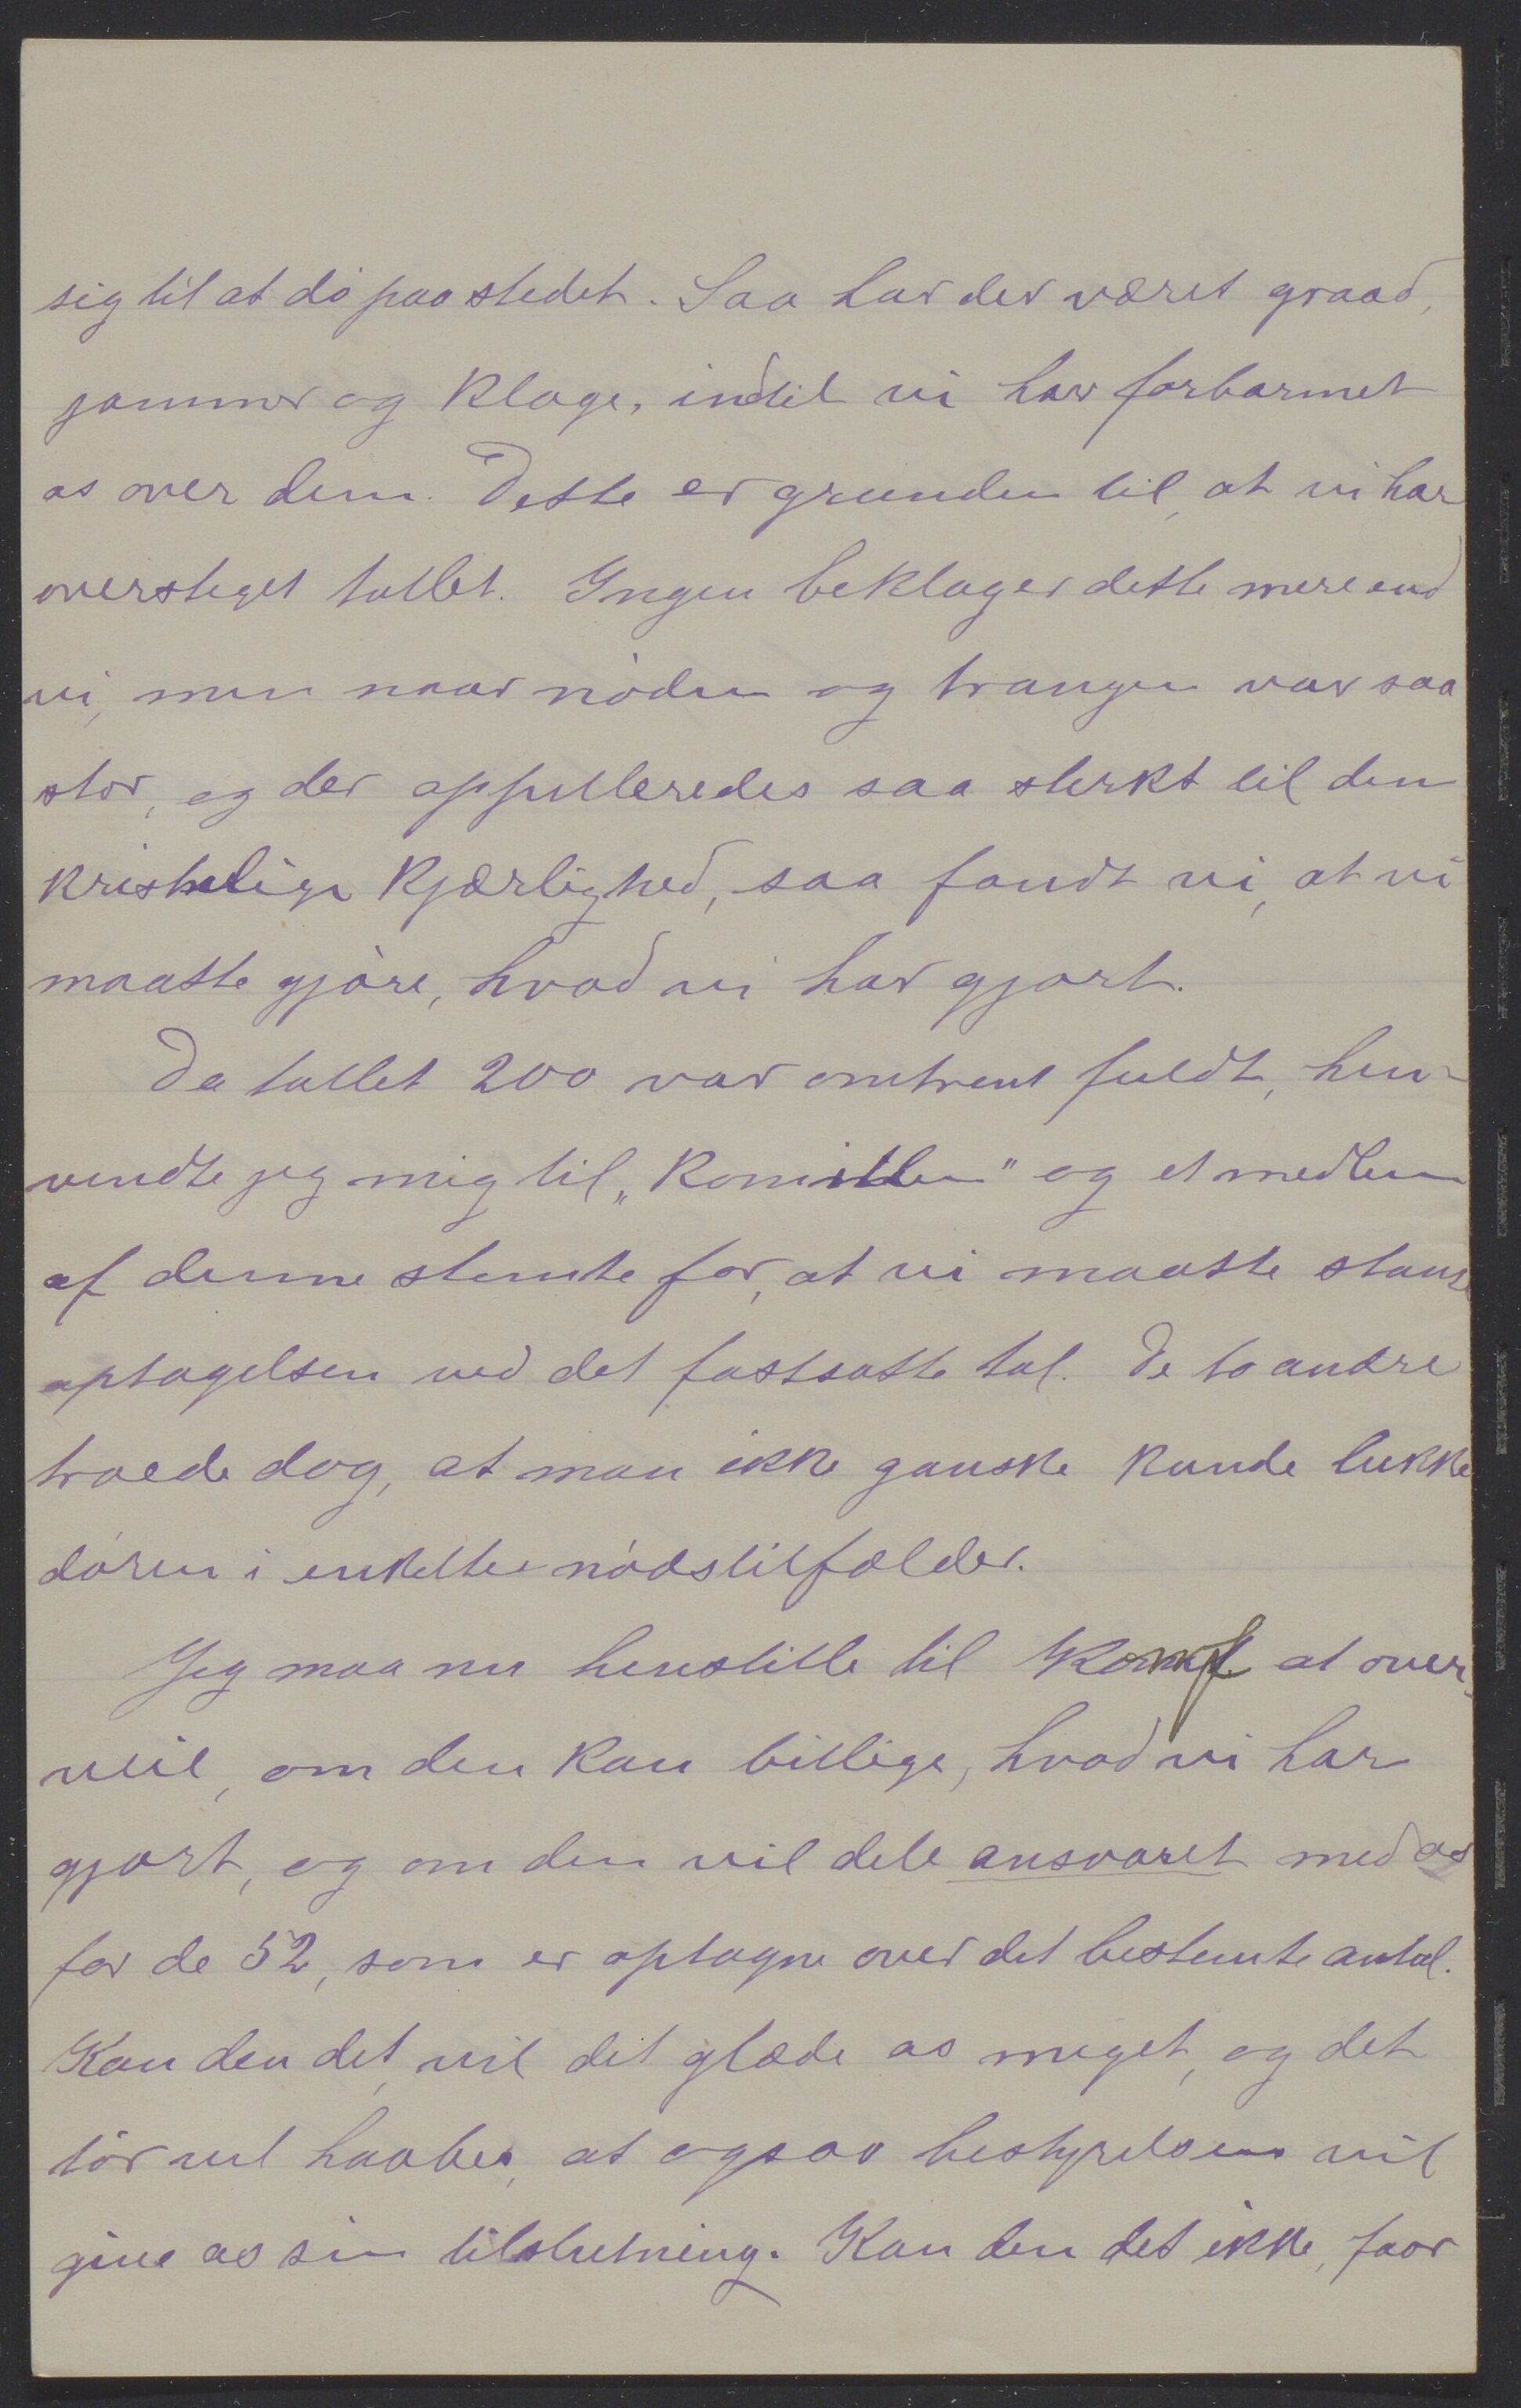 sig til at dö paa stedet. Saa har der været graad,
jammer og klage, indtil vi har forbarmet
os over dem. Dette er grunden til, at vi har
oversteget tallet. Ingen beklager dette mere end
vi, men naar nöden og trangen var saa
stor, og der appelleredes saa sterkt til den
kristelige kjærlighed, saa fandt vi, at vi
maatte gjöre, hvad vi har gjort.
Da tallet 200 var omtrent fuldt, hen-
vendte jeg mig til „Komitteen" og et medlem
af denne stemte for, at vi maatte stanse
optagelsen ved det fastsatte tal. De to andre
troede dog, at man ikke ganske kunde lukke
dören i enkelte nödstilfælder.
Jeg maa nu henstille til Konf at over,
veie, om den kan billige, hvad vi har
gjort, og om den vil dele ansvaret med os
for de 52, som er optagne over det bestemte antal.
Kan den det, vil det glæde os meget, og det
tör vel haabes, at ogsaa bestyrelsen vil
give os sin tilslutning. Kan den det ikke, faar